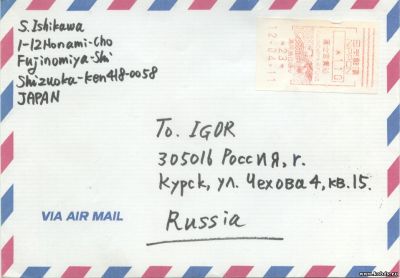 S. Ishikawa
1-12 Honami-Cho
Fujinomiya-Shi
Shizuoka-Ken 418-0058
JAPAN
To. IGOR
305016 Россия, г.
Курск, ул. Чехова 4, кв. 15.
Russia
VIA AIR MAIL